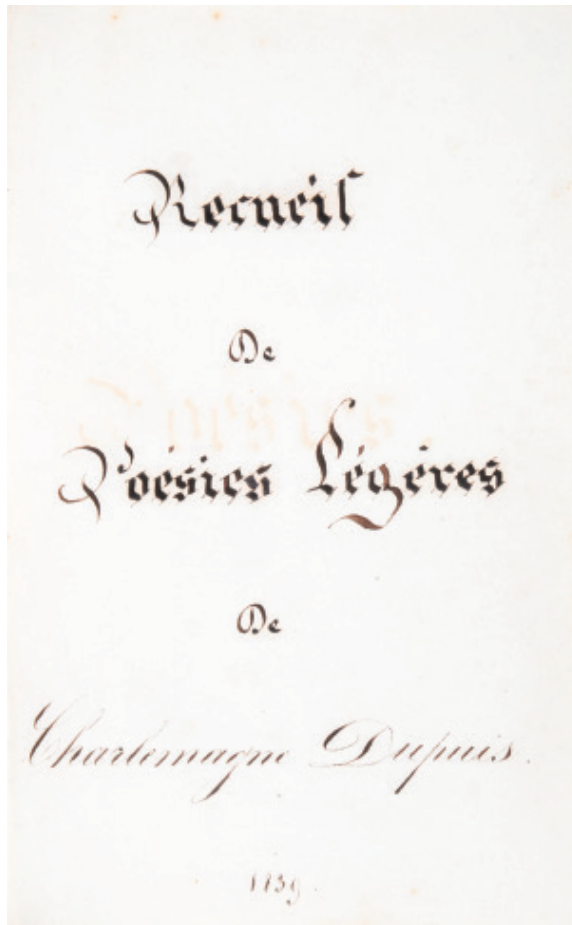 Recueil
De
Poésies Légères
De
Charlemagne Dupuis.
1839.